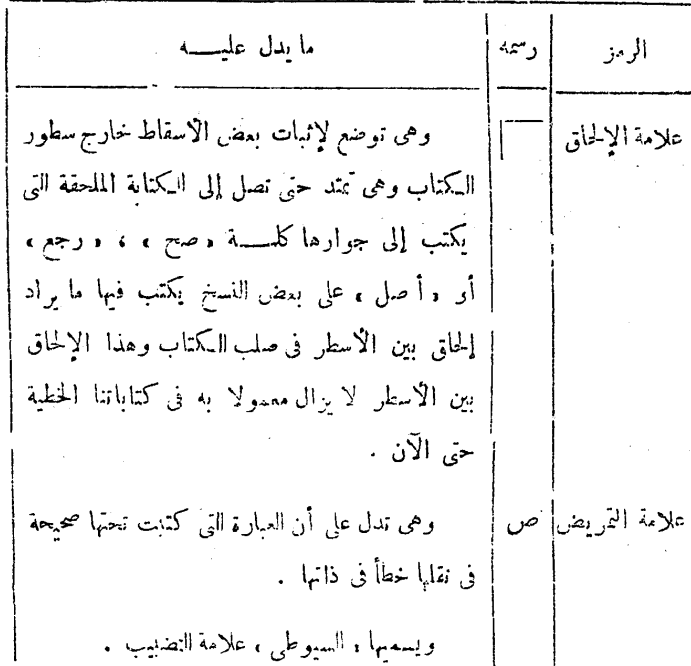 الرمز رسمه ما يدل عليـــه
علامة الإلحاق وهى توضع لإثبات بعض الأسقاط خارج سطور
الكتاب وهى تمتد حتى تصل إلى الكتابة الملحقة التى
يكتب إلى جوارها كلمـــة « صح » ، « رجع »
أو « أصل » على بعض النسخ يكتب فيها ما يراد
إلحاق بين الأسطر فى صلب الكتاب وهذا الإلحاق
بين الأسطر لا يزال معمولا به فى كتاباتنا الخطية
حتى الآن .
علامة التمريض ص وهى تدل على أن العبارة التى كتبت تحتها صحيحة
فى نقلها خطأ فى ذاتها .
ويسميها « السيوطى » علامة التضبيب .